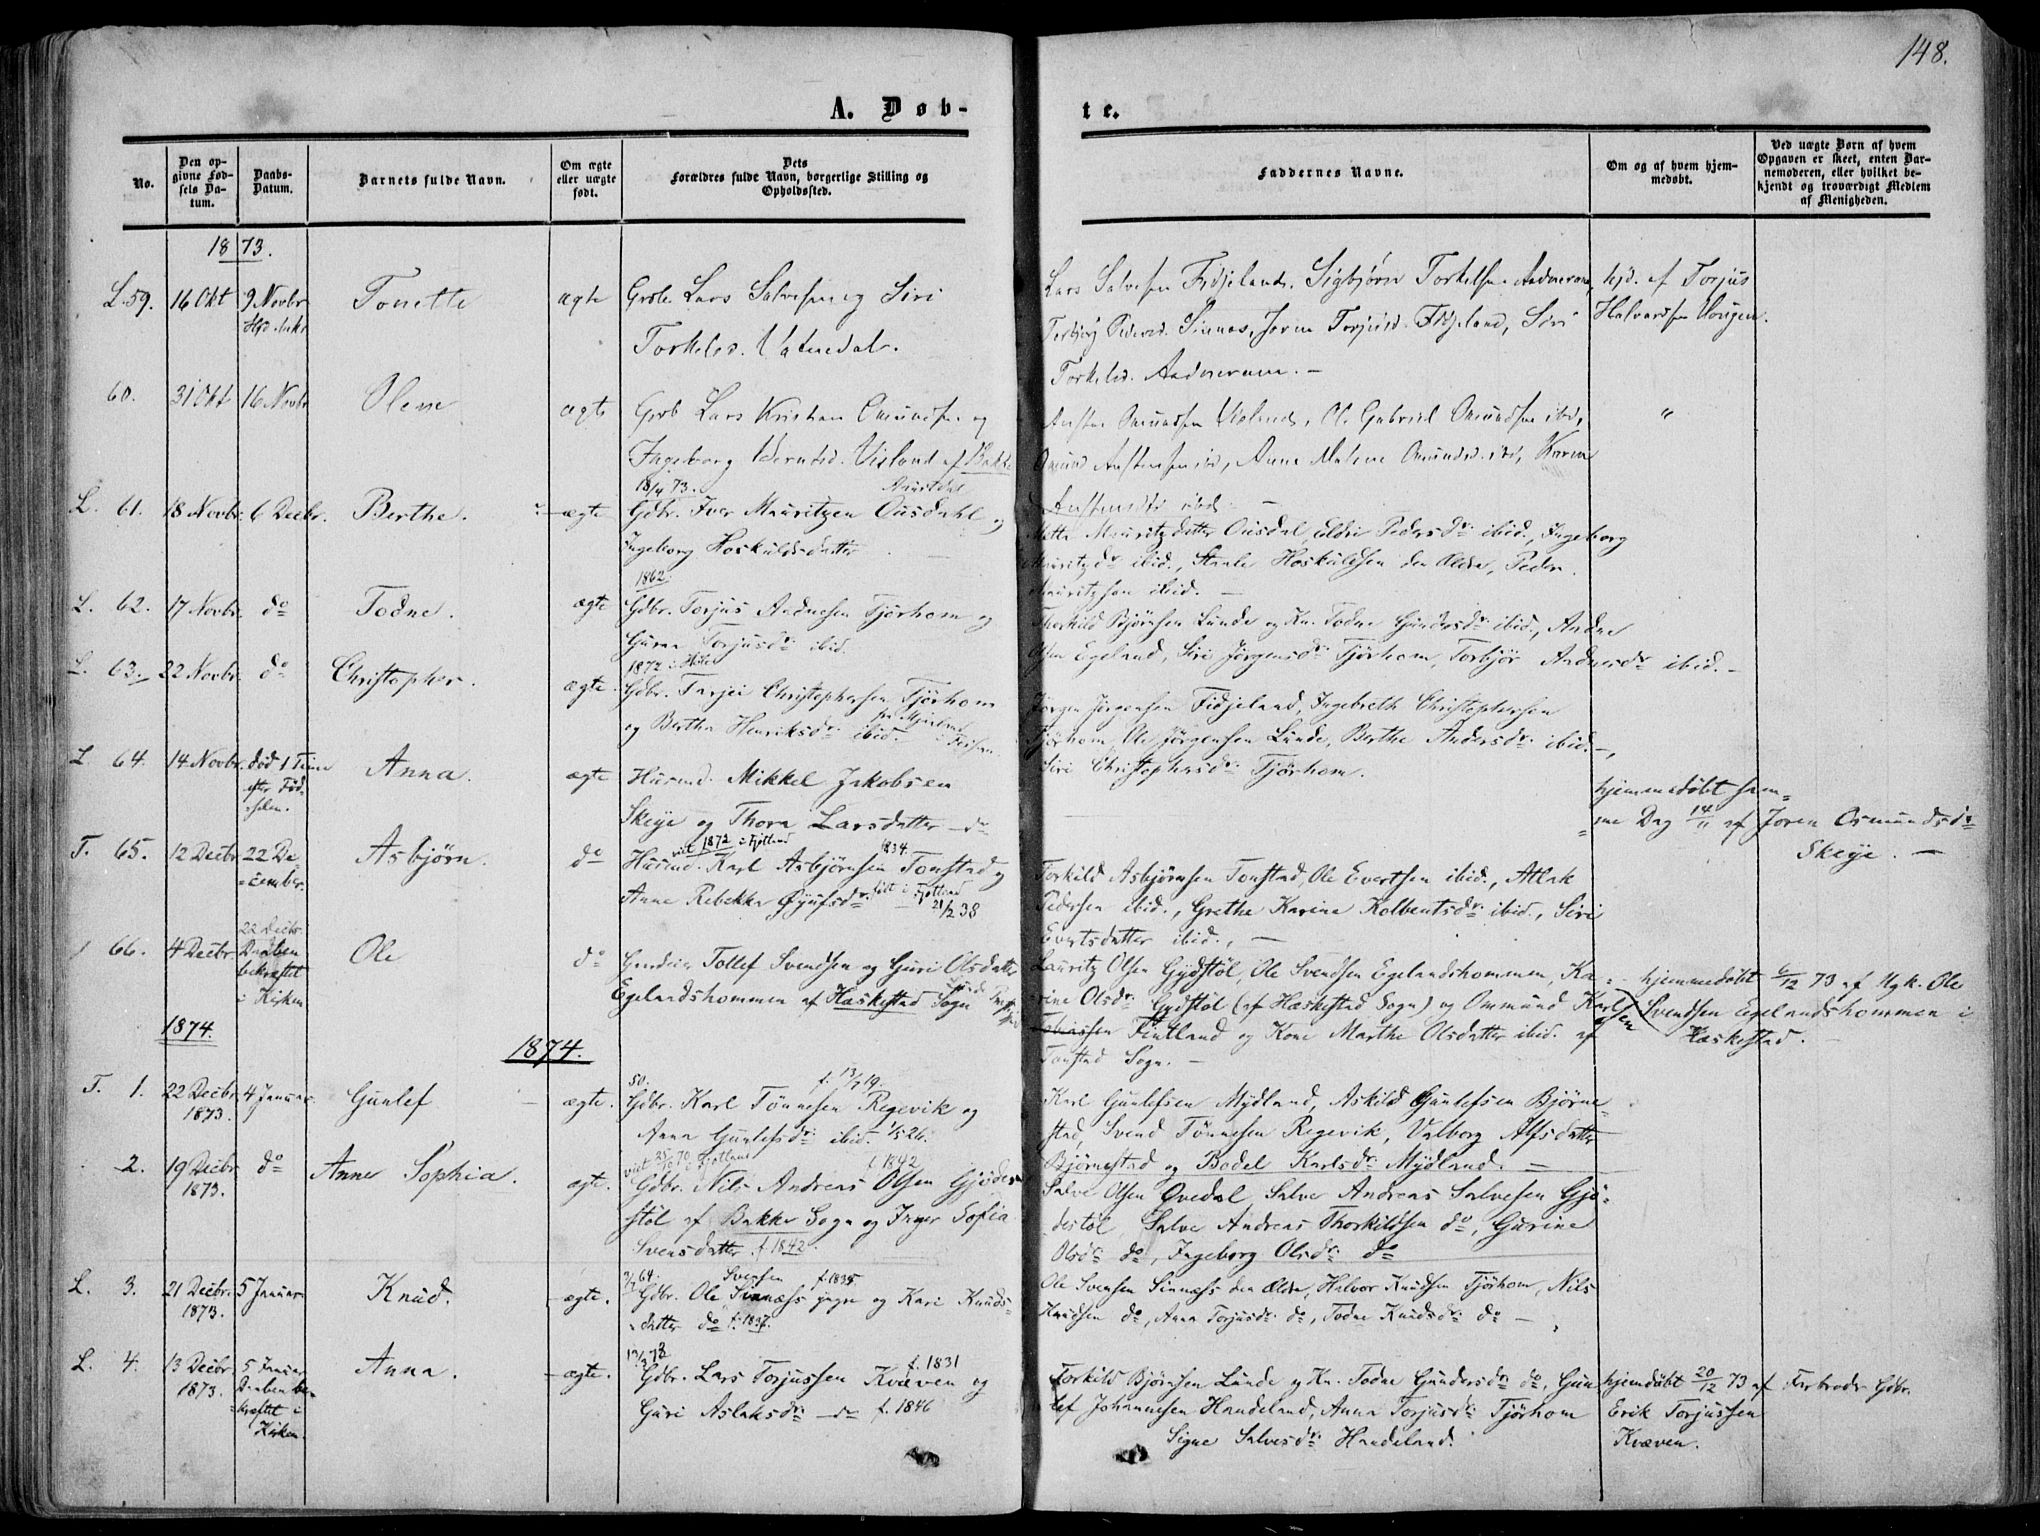 148.
A. Døb-
te.
No.
Den op-
givne Fød-
sels Da-
tum.
Daabs-
Datum.
Barnets fulde Navn.
Om ægte
eller uægte
født.
Dets
Forældres fulde Navn, borgerlige Stilling og
Opholdssted.
Faddernes Navne.
Om og af hvem hjem-
medøbt.
Ved uægte Børn af hvem
Opgaven er skeet, enten Bar-
nemoderen, eller hvilket be-
kjendt og troværdigt Medlem
af Menigheden.
1873.
L. 59. 16 Okt 9 Novbr Tonette ægte Lars Salvesen og Siri
Torkelsd. Vatnedal.
Lars Salvesen Fidjeland, Sigbjørn Torkelsen Aadneram,
Sinnes, Torjusd. Fidjeland, Siri
Torkelsd. Aadneram. —
hjd. af Torjus
Halvardsen
60. 31 Okt 16 Novbr Olene ægte Lars Kristian Omundsen og
Ingeborg Berntsd. Visland af Bakke
Omundsen Visland, Ole Gabriel Omundsen ibid,
Omund Austensen ibid, Anne Malene Omundsd. ibid, Karen
"
L. 61. 18 Novbr. 6 Decbr. Berthe. ægte
18/4 73.
Gdbr. Iver Mauritzen Ousdahl og
Ingeborg Hoskuldsdatter
Mette Mauritzdatter Ousdal, Eldri Pedersdr. ibid., Ingeborg
Mauritzdr ibid., Hoskuldsen den Ældre, Peder
Mauritzsen ibid. —
L. 62. 17 Novbr. do Todne. ægte
1862.
Gdbr. Torjus Aadnesen Tjørhom og
Guran Torjusdr. ibid.
Thorkild Bjørnsen Lunde og Kn. Todne Gundersdr. ibid., Aadne
Olsen Egeland, Siri Jørgensdr. Tjørhom, Torbjør Aadnesdr. ibid. —
L. 63. 22 Novbr. do Christopher. ægte.
Gdbr. Tarjei Christophersen Tjørhom
og Bertha Henriksdr. ibid.
Jørgen Jørgensen Fidjeland, Ingebreth Christophersen
Tjørhom, Ole Jørgensen Lunde, Berthe Andersdr. ibid. —,
Siri Christophersdr. Tjørhom.
L 64. 14 Novbr. død 1 Time
efter Fød-
selen.
Anna. ægte Husmd. Mikkel Jakobsen
Skeije og Thora Larsdatter do
hjemmedøbt sam=
me Dag 14/11 af Joren Osmundsdr
Skeije. —
T. 65. 12 Decbr 22 De-
cember.
Asbjørn. do
viet 1872 i Fjotland
1834.
Husmd. Karl Asbjørnsen Tonstad og
Anne Rebekka født i Fjotland
21/2 38
Torkild Asbjørnsen Tonstad, Ole Evertsen ibid., Atlak
Pedersen ibid., Grethe Karine Kolbentsdr. ibid., Siri
Evertsdatter ibid., —
66. 4 Decbr 22 Decbr.
Daaben
bekræftet
i Kirken
Ole do Tollef Svendsen og Guri Olsdatter
Egelandshommen af Hæskestad Sogn
Lauritz Olsen Gydstøl, Ole Svendsen Egelandshommen, Ka-
rine Olsdr. Gydstøl (af Hæskestad Sogn) og Ommund Karlsen
Fintland og Kone Marthe Olsdatter ibid. af
Tonstad Sogn. —
hjemmedøbt 6/12 73 af Ugk. Ole
Svendsen Egelandshommen i
Hæskestad.
1874.
1874.
T. 1. 22 Decbr
1873.
4 Januar Gunlef ægte.
50. f. 13/7 19.
Gdbr. Karl Tønnesen Regevik og
Anna Gunlefsdr. ibid. 1/5 26.
Karl Gunlefsen Mydland, Askild Gunlefsen Bjørne-
stad, Svend Tønnesen Regevik, Valborg Alfsdatter
Bjørnestad og Bodel Karlsdr. Mydland. —
2. 19 Decbr
1873.
do Anne Sophia. ægte.
f. 1842
Gdbr. Nils Andreas Olsen Gjødes-
støl af Bakke Sogn og Inger Sofia
Svensdatter f. 1842.
Salve Olsen Qvedal, Salve Andreas Salvesen Gjø-
destøl, Salve Andreas Thorkildsen do, Gurine
Olsdr. do, Ingeborg Olsdr. do
L. 3. 21 Decbr.
1873.
5 Januar Knud. ægte.
64. Svensen f. 1835
Gdbr. Ole Sinnæss yngre og Kari Knuds-
datter do f. 1837.
Ole Svensen Sinnæss den Ældre, Halvor Knudsen Tjørhom, Nils
Knudsen do, Anna Torjusdr. do, Todne Knudsdr. do —
L. 4. 13 Decbr.
1873.
5 Januar
Daaben be-
kræftet i
Kirken.
Anna. ægte.
f. 1831
Gdbr. Lars Torjussen Kvæven og
Guri Aslaksdr. do f. 1846
Torkild Bjørnsen Lunde og Kn. Todne Gundersdr. do, Gun
lef Johannesen Handeland, Anna Torjusdr. Tjørhom
Signe Salvesdr. Handeland.
hjemdøbt 20/12 73 af Farbroder Gdbr.
Erik Torjussen
Kvæven.